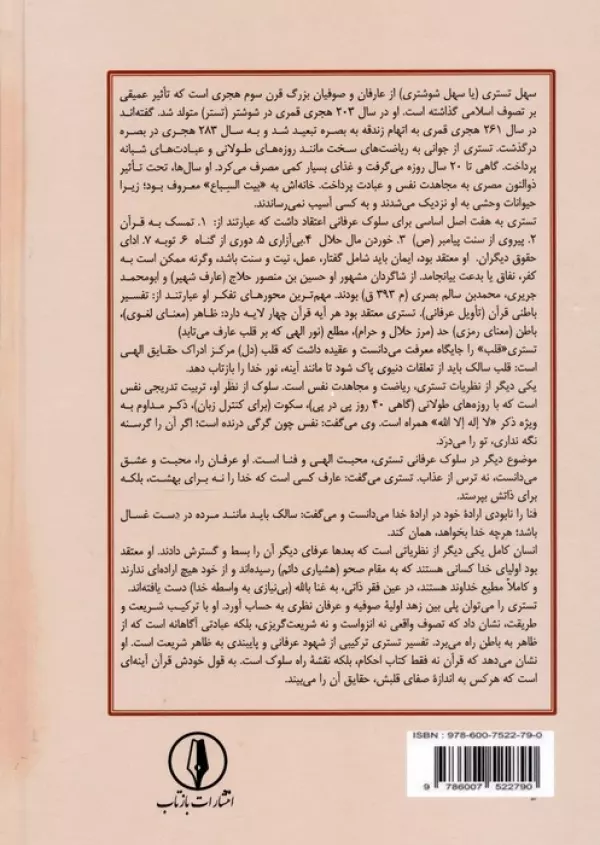 سهل تستری (یا سهل شوشتری) از عارفان و صوفیان بزرگ قرن سوم هجری است که تأثیر عمیقی
بر تصوف اسلامی گذاشته است. او در سال ۲۰۳ هجری قمری در شوشتر (تستر) متولد شد. گفته‌اند
در سال ۲۶۱ هجری قمری به اتهام زندقه به بصره تبعید شد و به سال ۲۸۳ هجری در بصره
درگذشت. تستری از جوانی به ریاضت‌های سخت مانند روزه‌های طولانی و عبادت‌های شبانه
پرداخت. گاهی تا ۲۰ سال روزه می‌گرفت و غذای بسیار کمی مصرف می‌کرد. او سال‌ها، تحت تأثیر
ذوالنون مصری به مجاهدت نفس و عبادت پرداخت. خانه‌اش به «بیت السباع» معروف بود؛ زیرا
حیوانات وحشی به او نزدیک می‌شدند و به کسی آسیب نمی‌رساندند.
تستری به هفت اصل اساسی برای سلوک عرفانی اعتقاد داشت که عبارتند از: ۱. تمسک به قرآن
۲. پیروی از سنت پیامبر (ص) ۳. خوردن مال حلال ۴.بی‌آزاری ۵. دوری از گناه ۶. توبه ۷. ادای
حقوق دیگران. او معتقد بود، ایمان باید شامل گفتار، عمل، نیت و سنت باشد، وگرنه ممکن است به
کفر، نفاق یا بدعت بیانجامد. از شاگردان مشهور او حسین بن منصور حلاج (عارف شهیر) و ابومحمد
جریری، محمدبن سالم بصری (م ۳۹۳ ق) بودند. مهم‌ترین محورهای تفکر او عبارتند از: تفسیر
باطنی قرآن (تأویل عرفانی). تستری معتقد بود هر آیه قرآن چهار لایه دارد: ظاهر (معنای لغوی)،
باطن (معنای رمزی) حد (مرز حلال و حرام)، مطلع (نور الهی که بر قلب عارف می‌تابد)
تستری«قلب» را جایگاه معرفت می‌دانست و عقیده داشت که قلب (دل) مرکز ادراک حقایق الهی
است: قلب سالک باید از تعلقات دنیوی پاک شود تا مانند آینه، نور خدا را بازتاب دهد.
یکی دیگر از نظریات تستری، ریاضت و مجاهدت نفس است. سلوک از نظر او، تربیت تدریجی نفس
است که با روزه‌های طولانی (گاهی ۴۰ روز پی در پی)، سکوت (برای کنترل زبان)، ذکر مداوم به
ویژه ذکر «لا إله إلا الله» همراه است. وی می‌گفت: نفس چون گرگی درنده است؛ اگر آن را گرسنه
نگه نداری، تو را می‌درد.
موضوع دیگر در سلوک عرفانی تستری، محبت الهی و فنا است. او عرفان را، محبت و عشق
می‌دانست، نه ترس از عذاب. تستری می‌گفت: عارف کسی است که خدا را نه برای بهشت، بلکه
برای ذاتش بپرستد.
فنا را نابودی ارادهٔ خود در ارادهٔ خدا می‌دانست و می‌گفت: سالک باید مانند مرده در دست غسال
باشد؛ هرچه خدا بخواهد، همان کند.
انسان کامل یکی دیگر از نظریاتی است که بعدها عرفای دیگر آن را بسط و گسترش دادند. او معتقد
بود اولیای خدا کسانی هستند که به مقام صحو (هشیاری دائم) رسیده‌اند و از خود هیچ اراده‌ای ندارند
و کاملاً مطیع خداوند هستند، در عین فقر ذاتی، به غنا بالله (بی‌نیازی به واسطه خدا) دست یافته‌اند.
تستری را می‌توان پلی بین زهد اولیهٔ صوفیه و عرفان نظری به حساب آورد. او با ترکیب شریعت و
طریقت، نشان داد که تصوف واقعی نه انزواست و نه شریعت‌گریزی، بلکه عبادتی آگاهانه است که از
ظاهر به باطن راه می‌برد. تفسیر تستری ترکیبی از شهود عرفانی و پایبندی به ظاهر شریعت است. او
نشان می‌دهد که قرآن نه فقط کتاب احکام، بلکه نقشهٔ راه سلوک است. به قول خودش قرآن آینه‌ای
است که هرکس به اندازهٔ صفای قلبش، حقایق آن را می‌بیند.
ISBN : 978-600-7522-79-0
9 786007 522790
انتشارات بازتاب